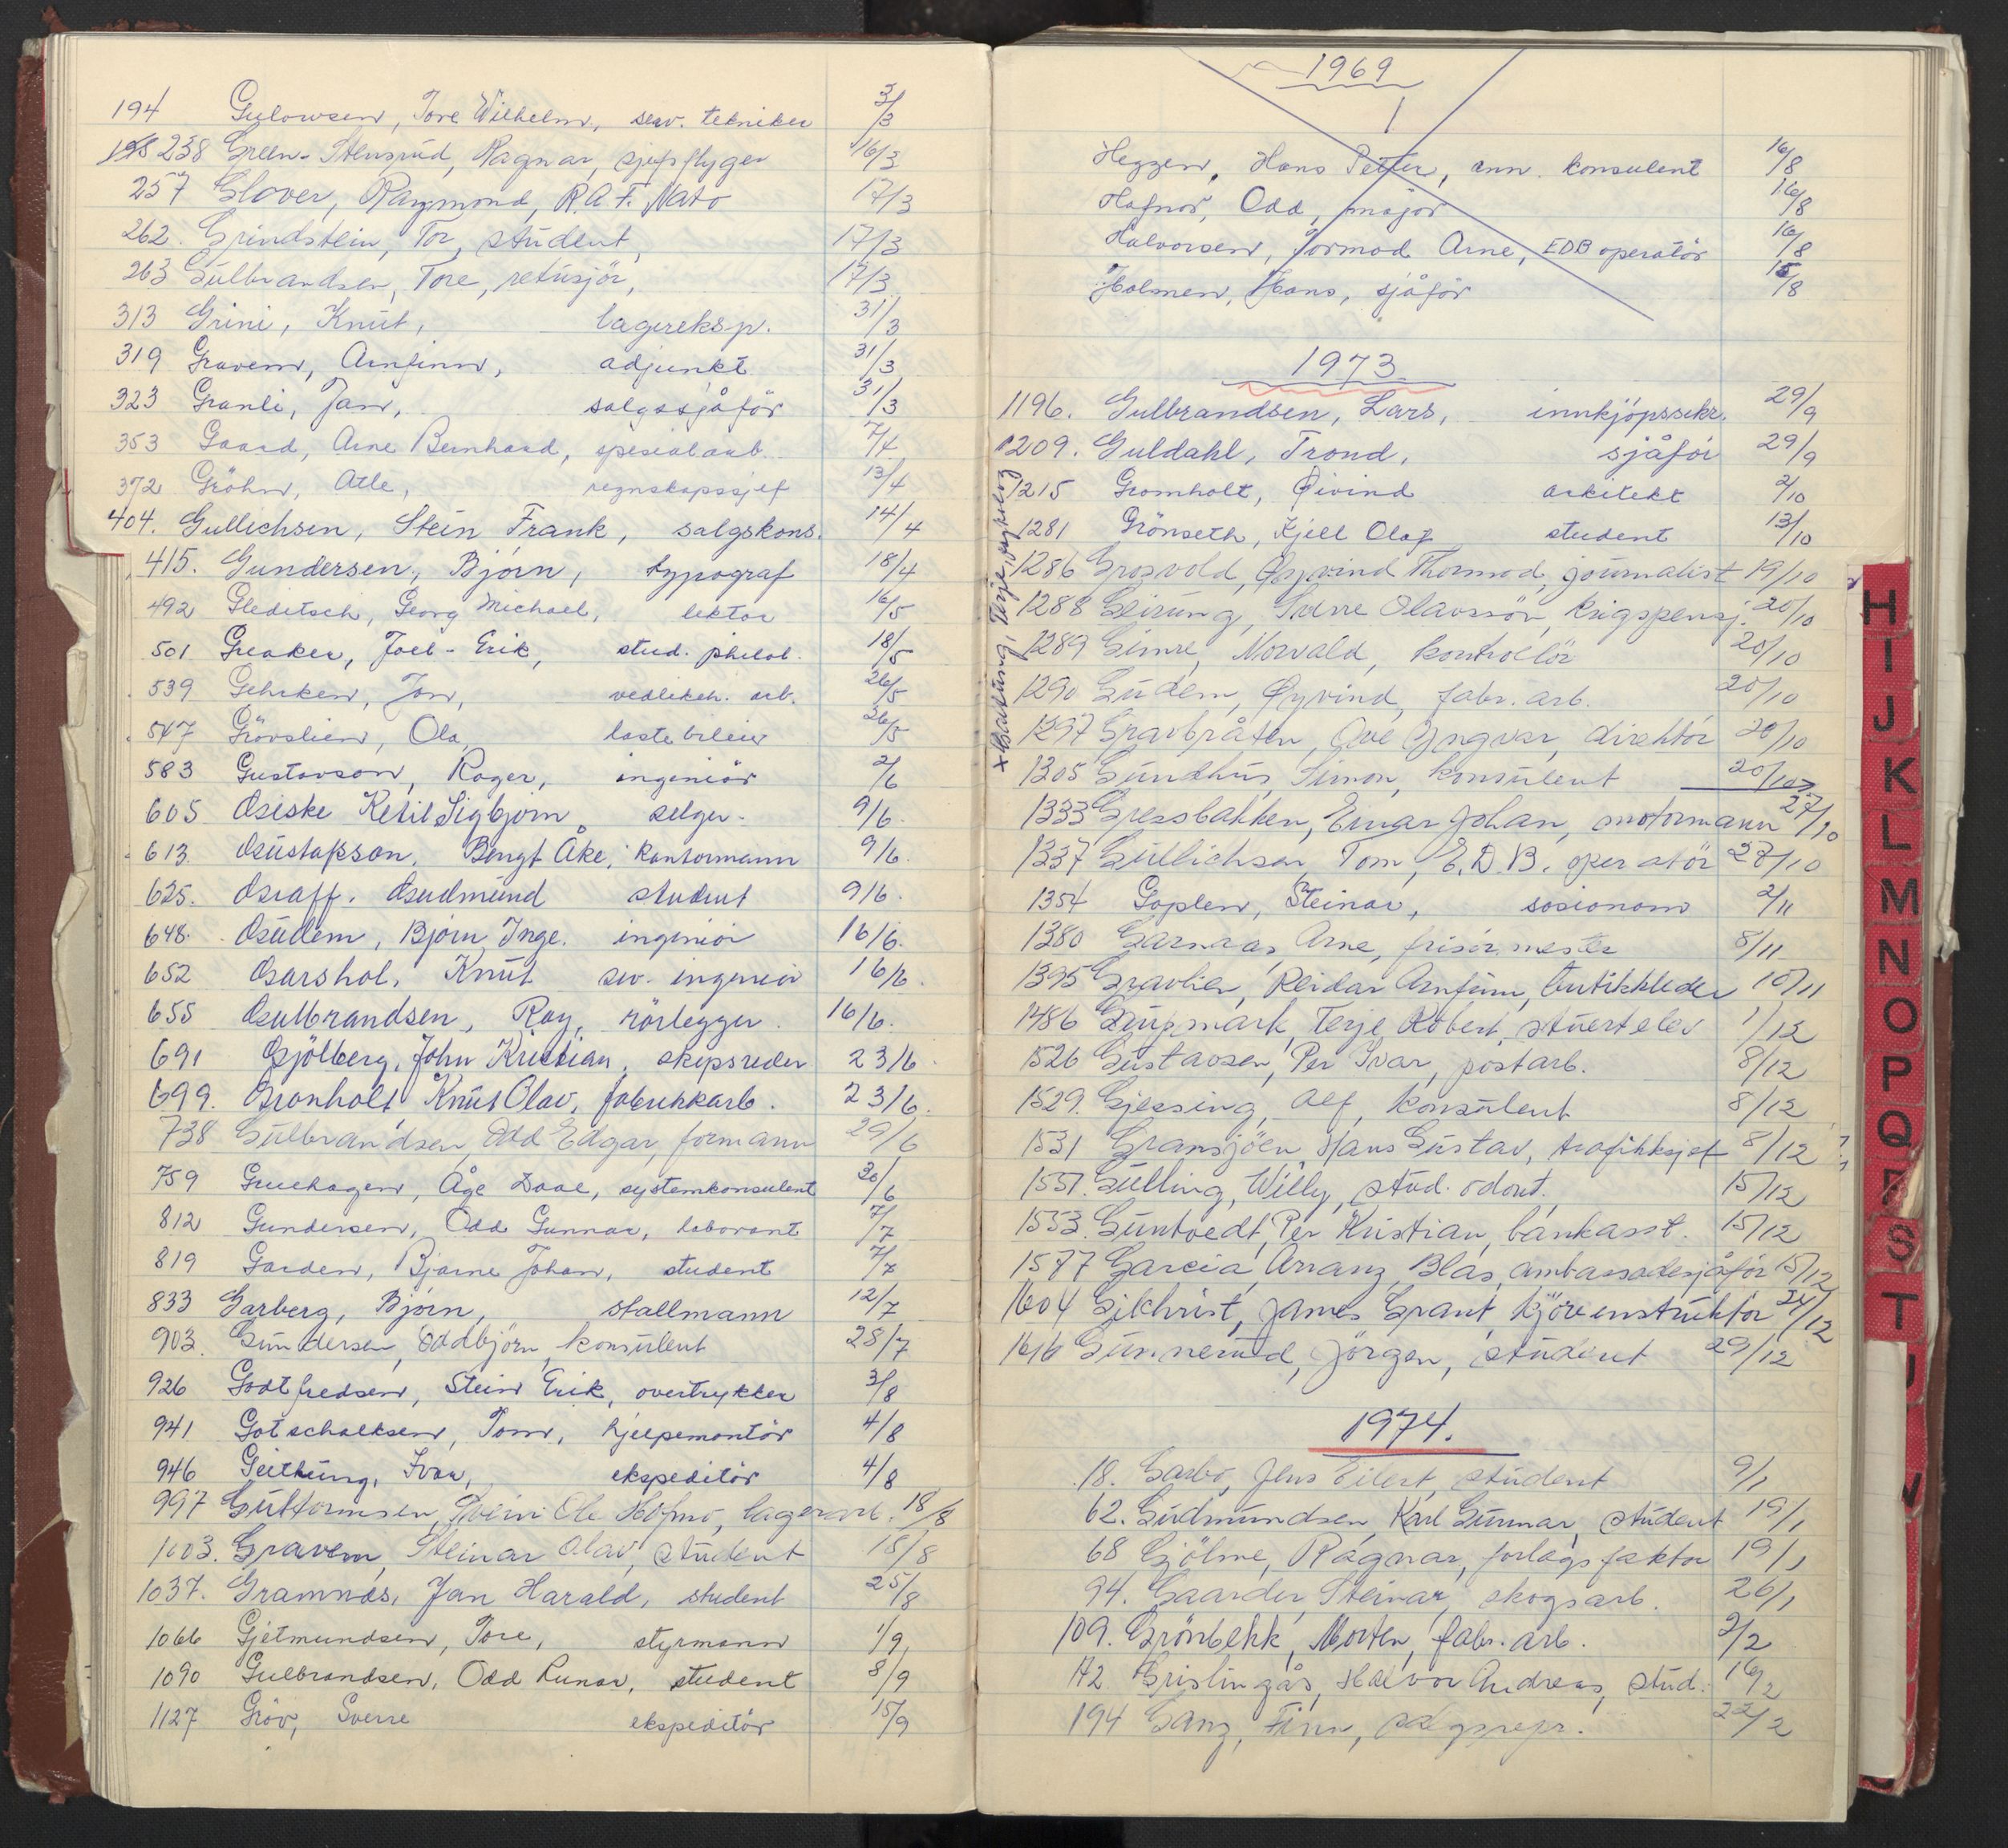 194 Gulowsen, Tore Wilhelm, serv. tekniker 3/3
238 Green-Stensrud, Ragnar, sjefsflyger 16/3
257 Glover, Raymond, R.A.F. Nato 17/3
262. Grindstein, Tor, student, 17/3
263 Gulbrandsen, Tore, retusjör, 17/3
313 Grini, Knut, lagereksp. 31/3
319 Gravem, Arnfinn, adjunkt 31/3
323 Granli, Jan, salgssjåför 31/3
353 Gaard, Arne Bernhard, spesialarb. 7/4
372 Gröhn, Atle, regnskapssjef 13/4
404. Gullichsen, Stein Frank, salgskons. 14/4
415. Gundersen, Bjørn, typograf 18/4
492 Gleditsch, Georg Michael, lektor 16/5
501 Greaker, Joel-Erik, stud. philol. 18/5
539 Gehrken, Jon, vedlikeh. arb. 26/5
547 Grövslien, Ola, lastebileier 26/5
583 Gustavson, Roger, ingeniör 2/6
605 Giske Ketil Sigbjørn, selger. 9/6.
613. Gustafson, Bengt Åke, kontormann 9/6.
625. Graff, Gudmund student 9/6.
648. Gudem, Bjørn Inge. ingeniör 16/6.
652 Garshol, Knut siv. ingeniör 16/6.
655 Gulbrandsen, Roy, rörlegger. 16/6.
691 Gjölberg, John Kristian, skipsreder 23/6.
699. Gronholt Knut Olav, fabrikkarb. 23/6.
738 Gulbrandsen, Odd Edgar, formann 29/6
759 Gruehagen, Åge Daae, systemkonsulent 30/6
812 Gundersen, Odd Gunnar, laborant 7/7
819 Garden, Bjarne Johan, student 7/7
833 Garberg, Bjørn, stallmann 12/7
903. Gundersen, Oddbjörn, konsulent 28/7
926 Godtfredsen, Stein Erik, overtrykker 3/8
941 Gotschalksen, Tom, hjelpemontör 4/8
946 Geithung, Ivar, ekspeditör 4/8
997 Guttormsen, Svein Ole Hofmo, lagerarb. 18/8
1003. Gravem, Steinar Olav, student 18/8
1037. Gramnæs, Jan Harald, student 25/8
1066 Gjetmundsen, Tore, styrmann 1/9
1090 Gulbrandsen, Odd Runar, student 8/9
1127 Gröv, Sverre ekspeditör 15/9
1969
Heggen, Hans Petter, ann. konsulent 16/8
Hafnor, Odd, major 16/8
Halvorsen, Tormod Arne, EDB operatör 16/8
Holmen, Hans, sjåför 15/8
1973
1196. Gulbrandsen, Lars, innkjöpssekr. 29/9
1209. Guldahl, Trond, sjåför 29/9
1215 Gromholt, Øivind arkitekt 2/10
1281 Grönseth, Kjell Olaf student 13/10
1286 Grosvold, Øyvind Thormod, journalist 19/10
1288 Geirung, Sverre Olavssön, krigspensj. 20/10
1289 Gimre, Norvald, kontrollör 20/10
1290 Gudem, Øyvind, fabr. arb. 20/10
1297 Gravbråten, Ove Yngvar, direktör 20/10
1305 Gundhus, Simon, konsulent 20/10
x Hartung, Terje, psykolog
1333 Gressbakken, Einar Johan, motormann 27/10
1337 Gullichsen, Tom, E.D.B. operatör 28/10
1354 Goplen, Steinar, sosionom 2/11
1380 Garnaas, Arne, frisörmester 8/11
1395 Gravlien, Reidar Arnfinn, butikkleder 10/11
1486 Terje Robert, stuertelev 1/12
1526 Gustavsen, Per Ivar, postarb. 8/12
1529. Gjessing, Alf, konsulent 8/12
1531 Gransjöen, Hans Gustav, trafikksjef 8/12
1551. Gulling, Willy, stud. odont. 15/12
1553. Guntvedt, Per Kristian, bankasst. 15/12
1577 Garcia Arranz, Blas, ambassadesjåför 15/12
1604 Gilchrist, James Grant, kjöreinstruktör 24/12
1616 Gunnerud, Jörgen, student 29/12
1974.
18. Garbo, Jens Eilert, student 9/1
62. Gudmundsen, Karl Gunnar, student 19/1
68 Gjölme, Ragnar, forlagsfaktor 19/1
94. Gaarder, Steinar, skogsarb. 26/1
109. Grönbekk, Morten, fabr. arb. 2/2
172 Grislingås, Halvor Andreas, stud. 16/2
194 Ganz, Finn, salgsrepr. 22/2
H
I
J
K
L
M
N
O
P
Q
R
S
T
U
V